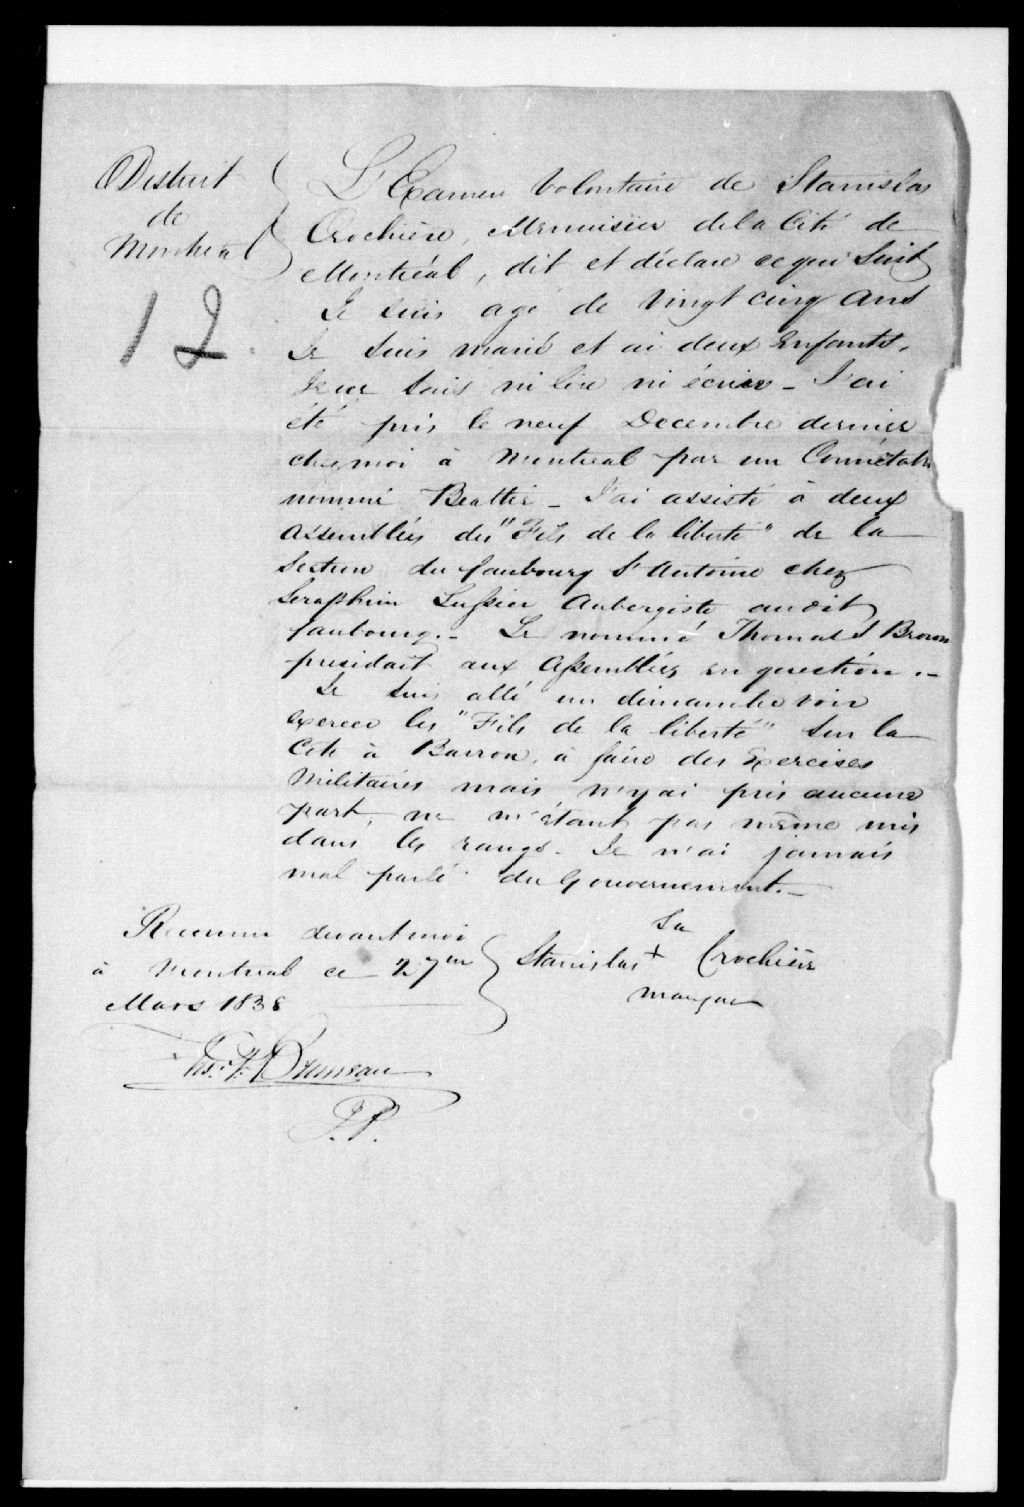 District
de
Montréal
12
L'Examen Volontaire de Stanislas
Crochière, Menuisier de la Cité de
Montréal, dit et déclare ce qui Suit
Je suis agé de Vingt cinq Ans
Je suis marié et ai deux Enfants.
Je ne sais ni lire ni écrire - J'ai
été pris le neuf Decembre dernier
chez moi à Montreal par un Connétable
nommé Beattie - J'ai assisté à deux
Assemblées des "Fils de la liberté" de la
Section du faubourg St Antoine chez
Seraphim Lussier Aubergiste au dit
faubourg. - Le nommé Thomas S Brown
presidait aux Assemblées en question. -
Je suis allé un dimanche voir
exercer les "Fils de la liberté" sur la
Côte à Barron, à faire des Exercises
Militaires mais n'y ai pris aucune
part, ne m'étant pas même mis
dans les rangs - Je n'ai jamais
mal parlé du Gouvernement. -
Reconnu devant moi
à Montreal ce 27me
Mars 1838
Sa
Stanislas + Crochière
marque
P. Bruneau
J.P.